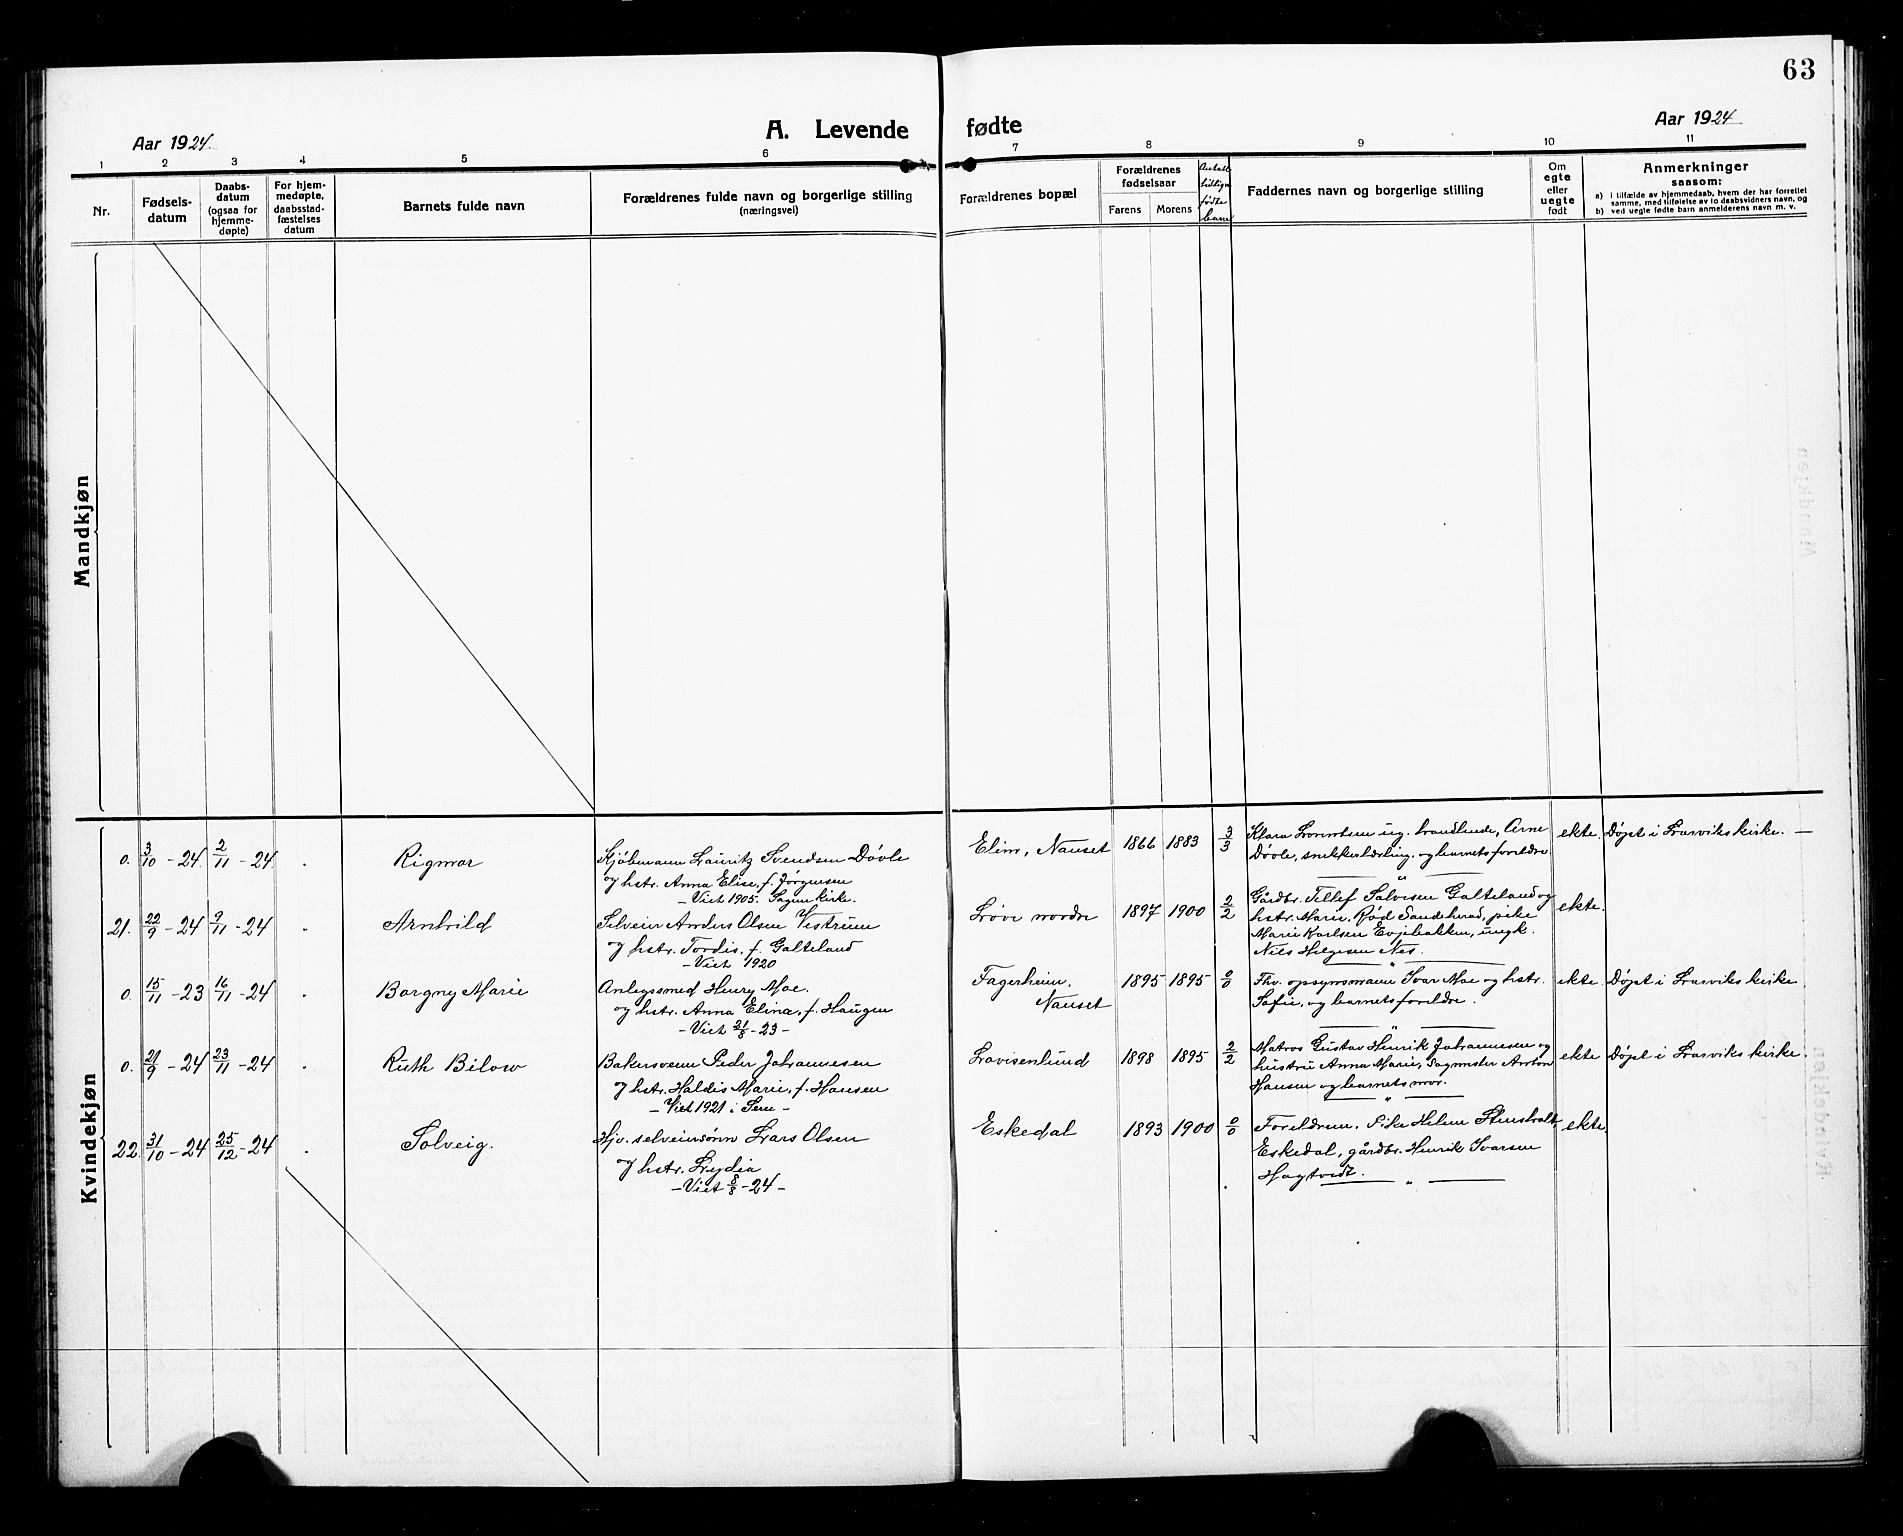 63
Aar 1924.
A. Levende fødte
Aar 1924
1 2 3 4 5 6 7 8 9 10 11
Nr.
Fødsels-
datum
Daabs-
datum
(ogsaa for
hjemme-
døpte)
For hjem-
medøpte,
daabsstad-
fæstelses
datum
Barnets fulde navn
Forældrenes fulde navn og borgerlige stilling
(næringsvei)
Forældrenes bopæl
Forældrenes
fødselsaar
Farens Morens
Antall
tidligere
fødte
barn
Faddernes navn og borgerlige stilling
Om
egte
eller
uegte
født
Anmerkninger
saasom:
a) i tilfælde av hjemmedaab, hvem der har forrettet
samme, med tilføielse av to daabsvidners navn, og
b) ved uegte fødte barn anmelderens navn m. v.
Mandkjøn
Kvindekjøn
0. 3/10 - 24. 2/11 - 24 Rigmor
Kjøbmann Lauritz Svendsen Døvle
og hstr. Anna Elise, f. Jørgensen
- Viet 1905. Fagun kirke.
Elim, Nanset 1866 1883 3/3
Klara Lorentsen ug. Landlende, Arne
Døvle, snekkerlærling, og barnets foreldre
ekte. Døpt i Larviks kirke. -
21. 22/9 - 24 9/11 - 24 Arnhild
Selveier Anders Olsen Vestrum
og hstr. Tordis, f. Galteland
- Viet 1920
Løve nordre 1897 1900 2/2
Gårdbr. Tellef Salvesen Galteland og
hstr. Marie, Rød Sandeherad, pike
Marie Karlsen Evjebakken, ungk.
Nils Helgesen Nes.
ekte.
0. 15/11 - 23 16/11 - 24 Borgny Marie
Anlegssmed Henry Moe.
og hstr. Anna Elina, f. Haugen
- Viet 21/8 - 23 -
Fagerheim,
Nanset
1895 1895 0/0
Fhv. opsynsmann Ivar Moe og hstr.
Sofie, og barnets foreldre.
ekte Døpt i Larviks kirke
0. 21/9 - 24 23/11 - 24 Ruth Bilow
Bakersvenn Peder Johannesen
og hstr. Haldis Marie, f. Hansen
- Viet 1921 i Sem -
Lovisenlund 1898 1895 2/2
Matros Gustav Henrik Johannesen og
hustru Anna Marie, Sagmester Anton
Hansen og barnets mor.
ekte Døpt i Larviks kirke.
22. 31/10 - 24 25/12 - 24 Solveig.
Hjv. selveiersønn Lars Olsen
og hstr. Lydia
- Viet 8/8 - 24 -
Eskedal 1893 1900 0/0
Foreldrene. Pike Helene Stensholt
Eskedal, gårdbr. Henrik Ivarsen
Hagtvedt.
ekte.